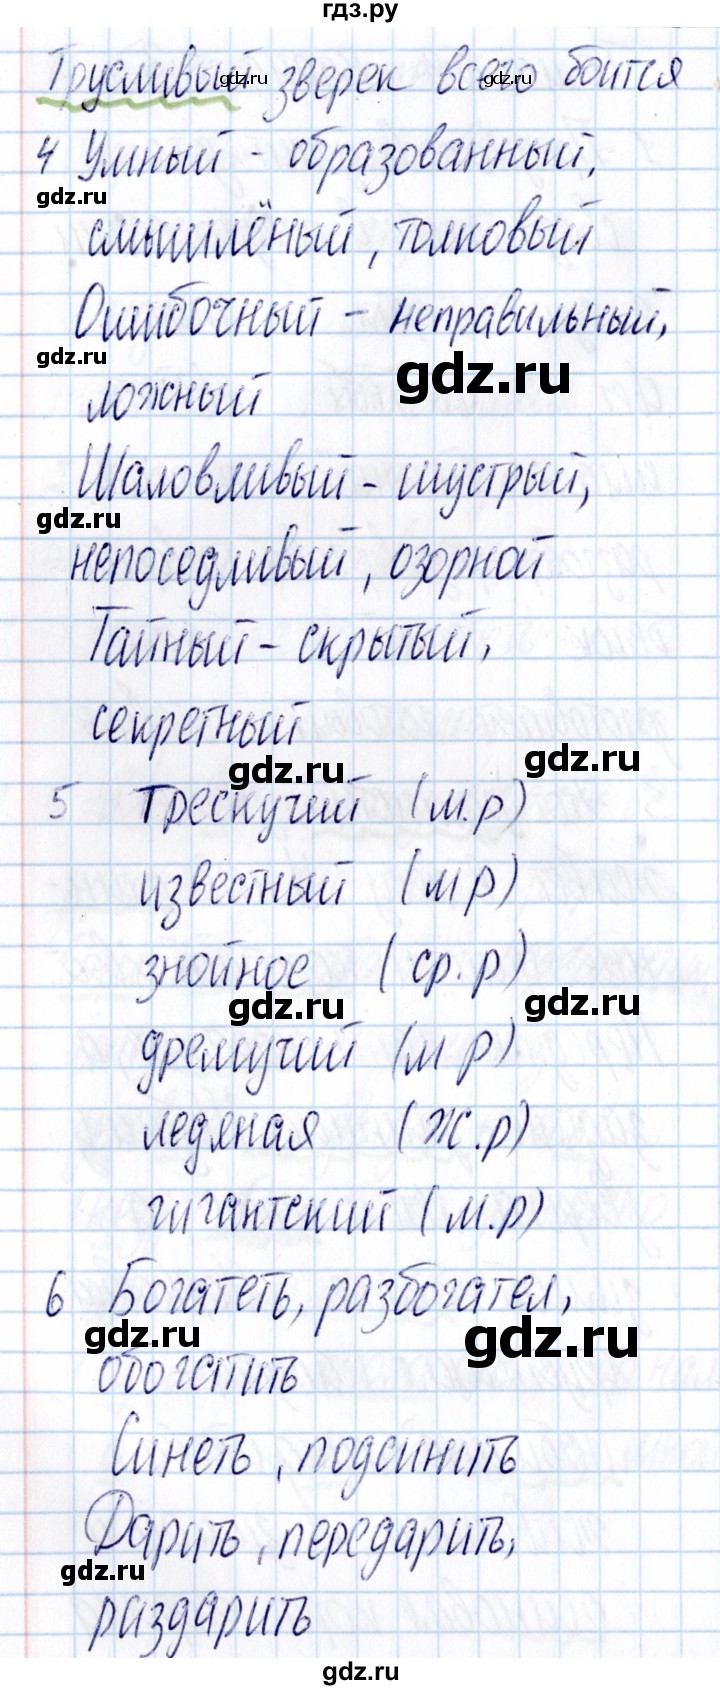 гдз.ру
Трусливый зверек всего боится
gdz.ru gdz.ru
4 Умный - образованный,
gdz.ru
смышлёный, толковый
Ошибочный - неправильный,
gdz.ru
gdz.ru
ложный
Шаловливый - шустрый,
gdz.ru
непоседливый, озорной
Тайный - скрытый,
секретный
gdz.ru gdz.ru
5 Трескучий (м.р)
известный (м р)
знойное (ср.р)
gdz.ru gdz.ru
дремучий (м р)
ледяная (ж.р)
гигантский (м.р)
6 Богатеть, разбогател,
gdz.ru gdz.ru
обогатить
Синеть, подсинить
Дарить, передарить,
gdz.ru
раздарить
gdz.ru